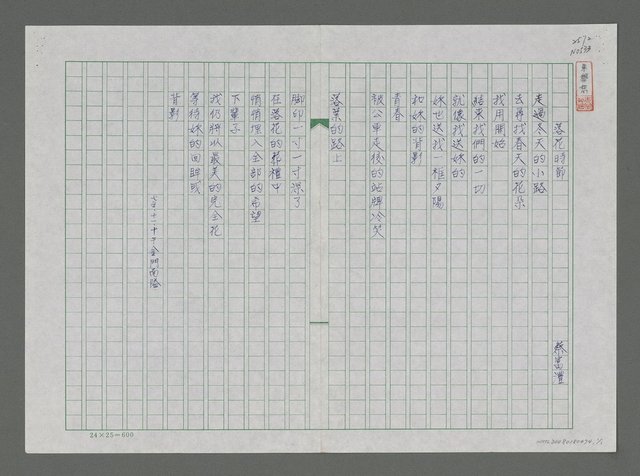 2512
落花時節
蔡富澧
走過冬天的小路
去尋找春天的花朵
我用開始
結束我們的一切
就像我送妳的
妳也送我一樁夕陽
和妳的背影
青春
被公車走後的站牌冷笑
落葉的路上
腳印一寸一寸深了
在落花的葬禮中
悄悄埋入全部的希望
下輩子
我仍將以最美的兒全花
等待妳的回眸或
背影
金門南隆
24×25=600